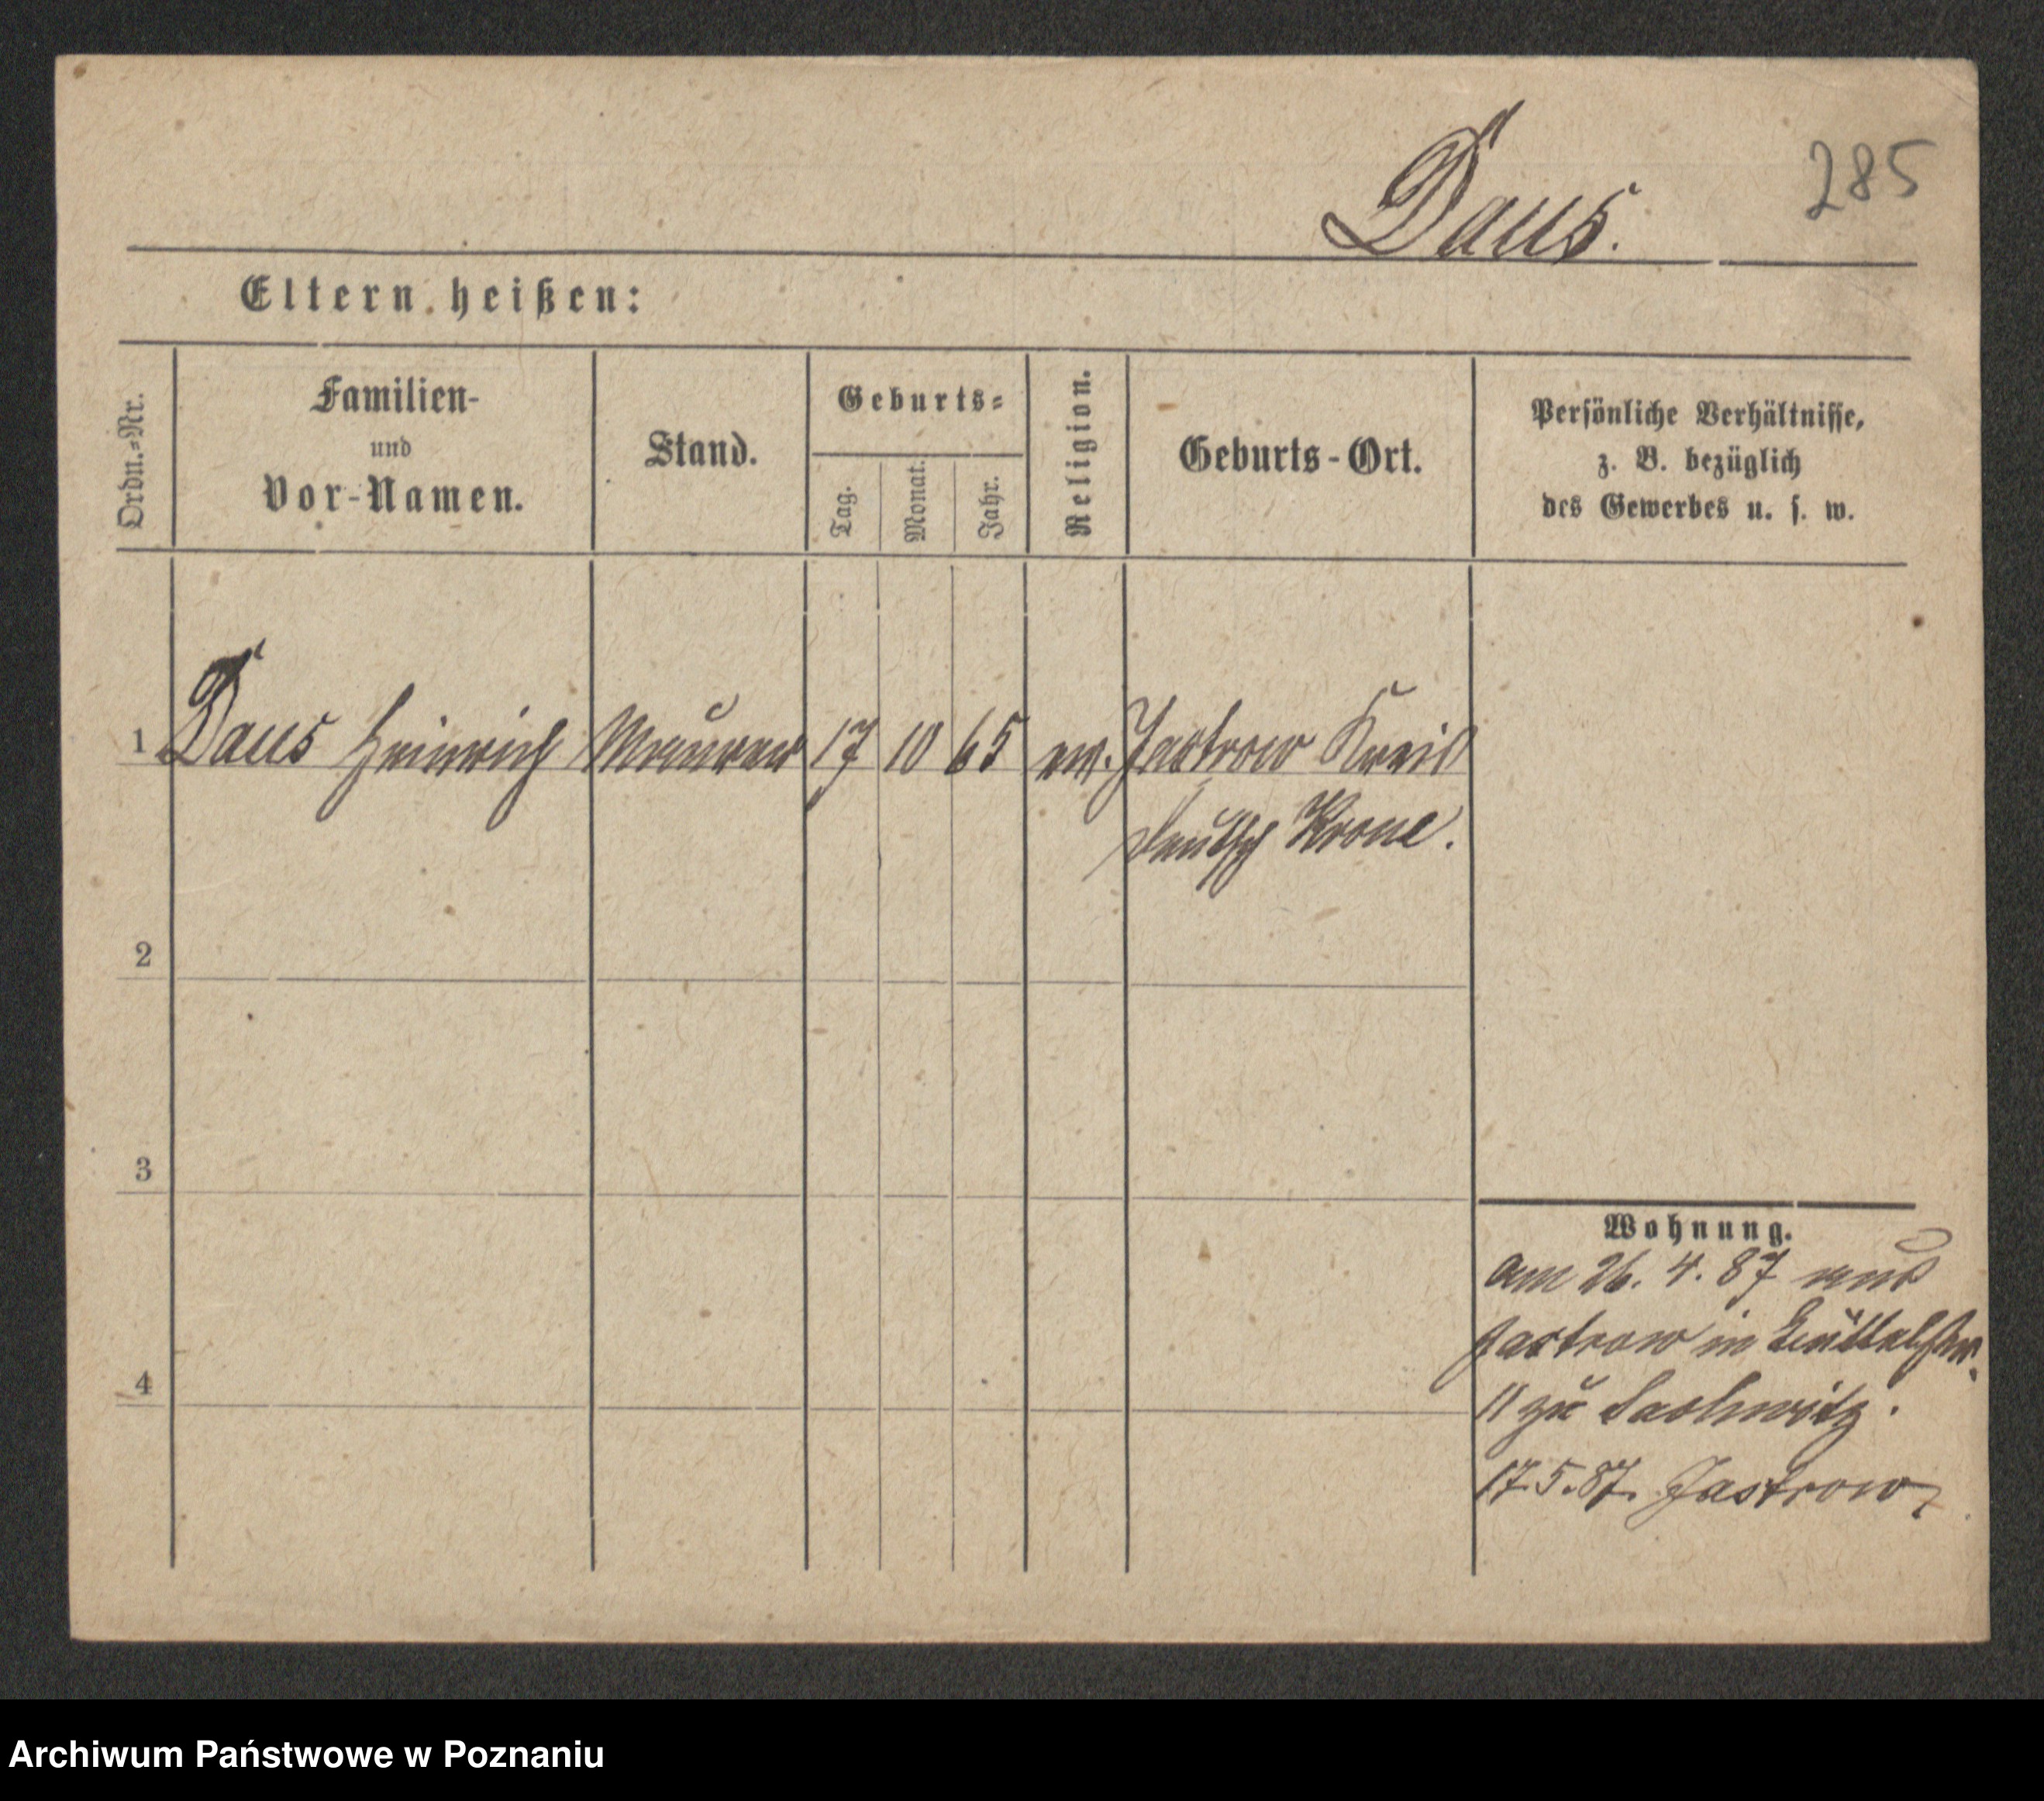 285
Daus.
Eltern heißen:
Ordn.-Nr.
Familien-
und
Vor-Namen.
Stand.
Geburts-
Tag.
Monat.
Jahr.
Religion.
Geburts-Ort.
Persönliche Verhältnisse,
z. B. bezüglich
des Gewerbes u. s. w.
1 Daus Heinrich Maurer 17 10 65 ev. Jastrow Kreis
Deutsch Krone.
2
3
4
Wohnung.
am 26. 4. 87 aus
Jastrow in
11 zu
17.5.87. Jastrow
Archiwum Państwowe w Poznaniu